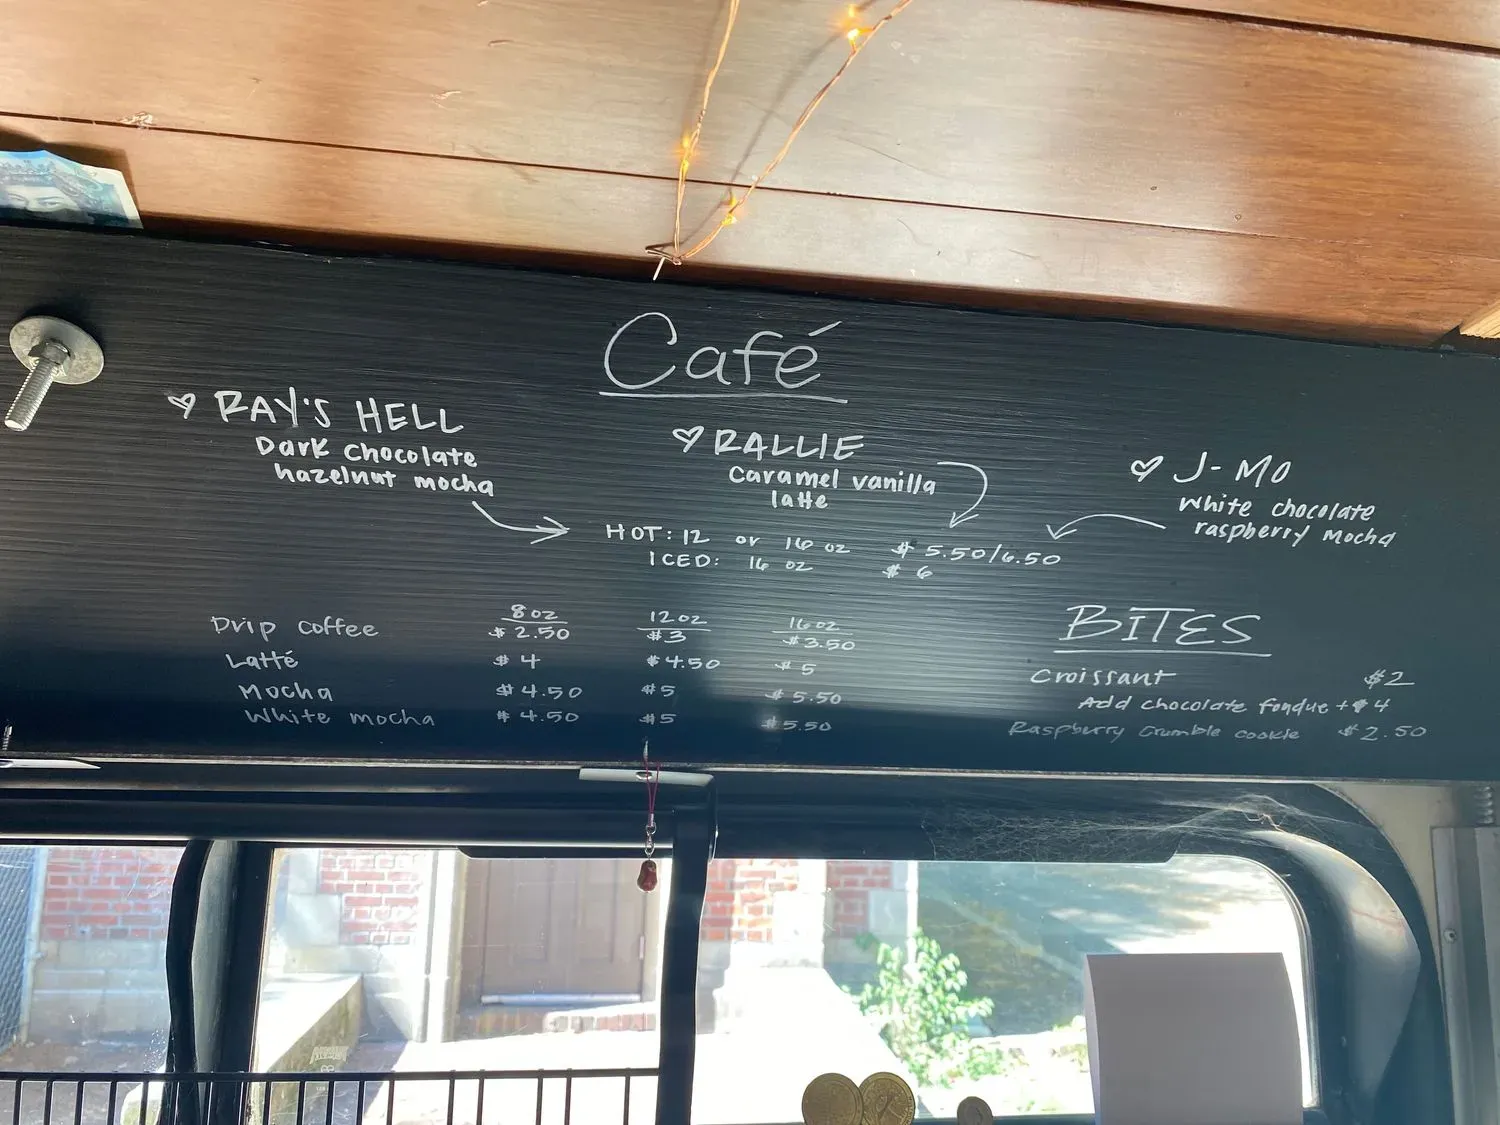 Café
♡ RAY'S HELL
Dark chocolate
hazelnut mocha
♡ RALLIE
Caramel vanilla
latte
♡ J-MO
White chocolate
raspberry mocha
HOT: 12 or 16 oz $ 5.50/6.50
ICED: 16 oz $ 6
8oz 12oz 16oz
Drip coffee $ 2.50 $3 $3.50
Latté $ 4 $4.50 $ 5
Mocha $ 4.50 $5 $ 5.50
White mocha $ 4.50 $5 $5.50
BITES
Croissant $2
Add chocolate fondue +$4
Raspberry Crumble cookie $2.50